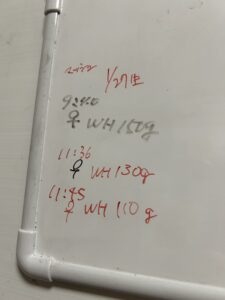 1/27
♀ WH 150g
11:36
♀ WH 130g
11:45
♀ WH 110g